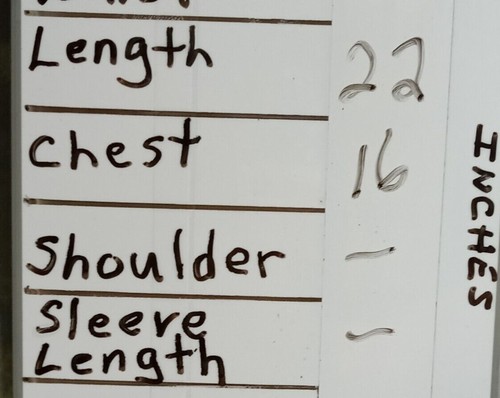 Length 22
Chest 16
Shoulder -
Sleeve
Length -
INCHES